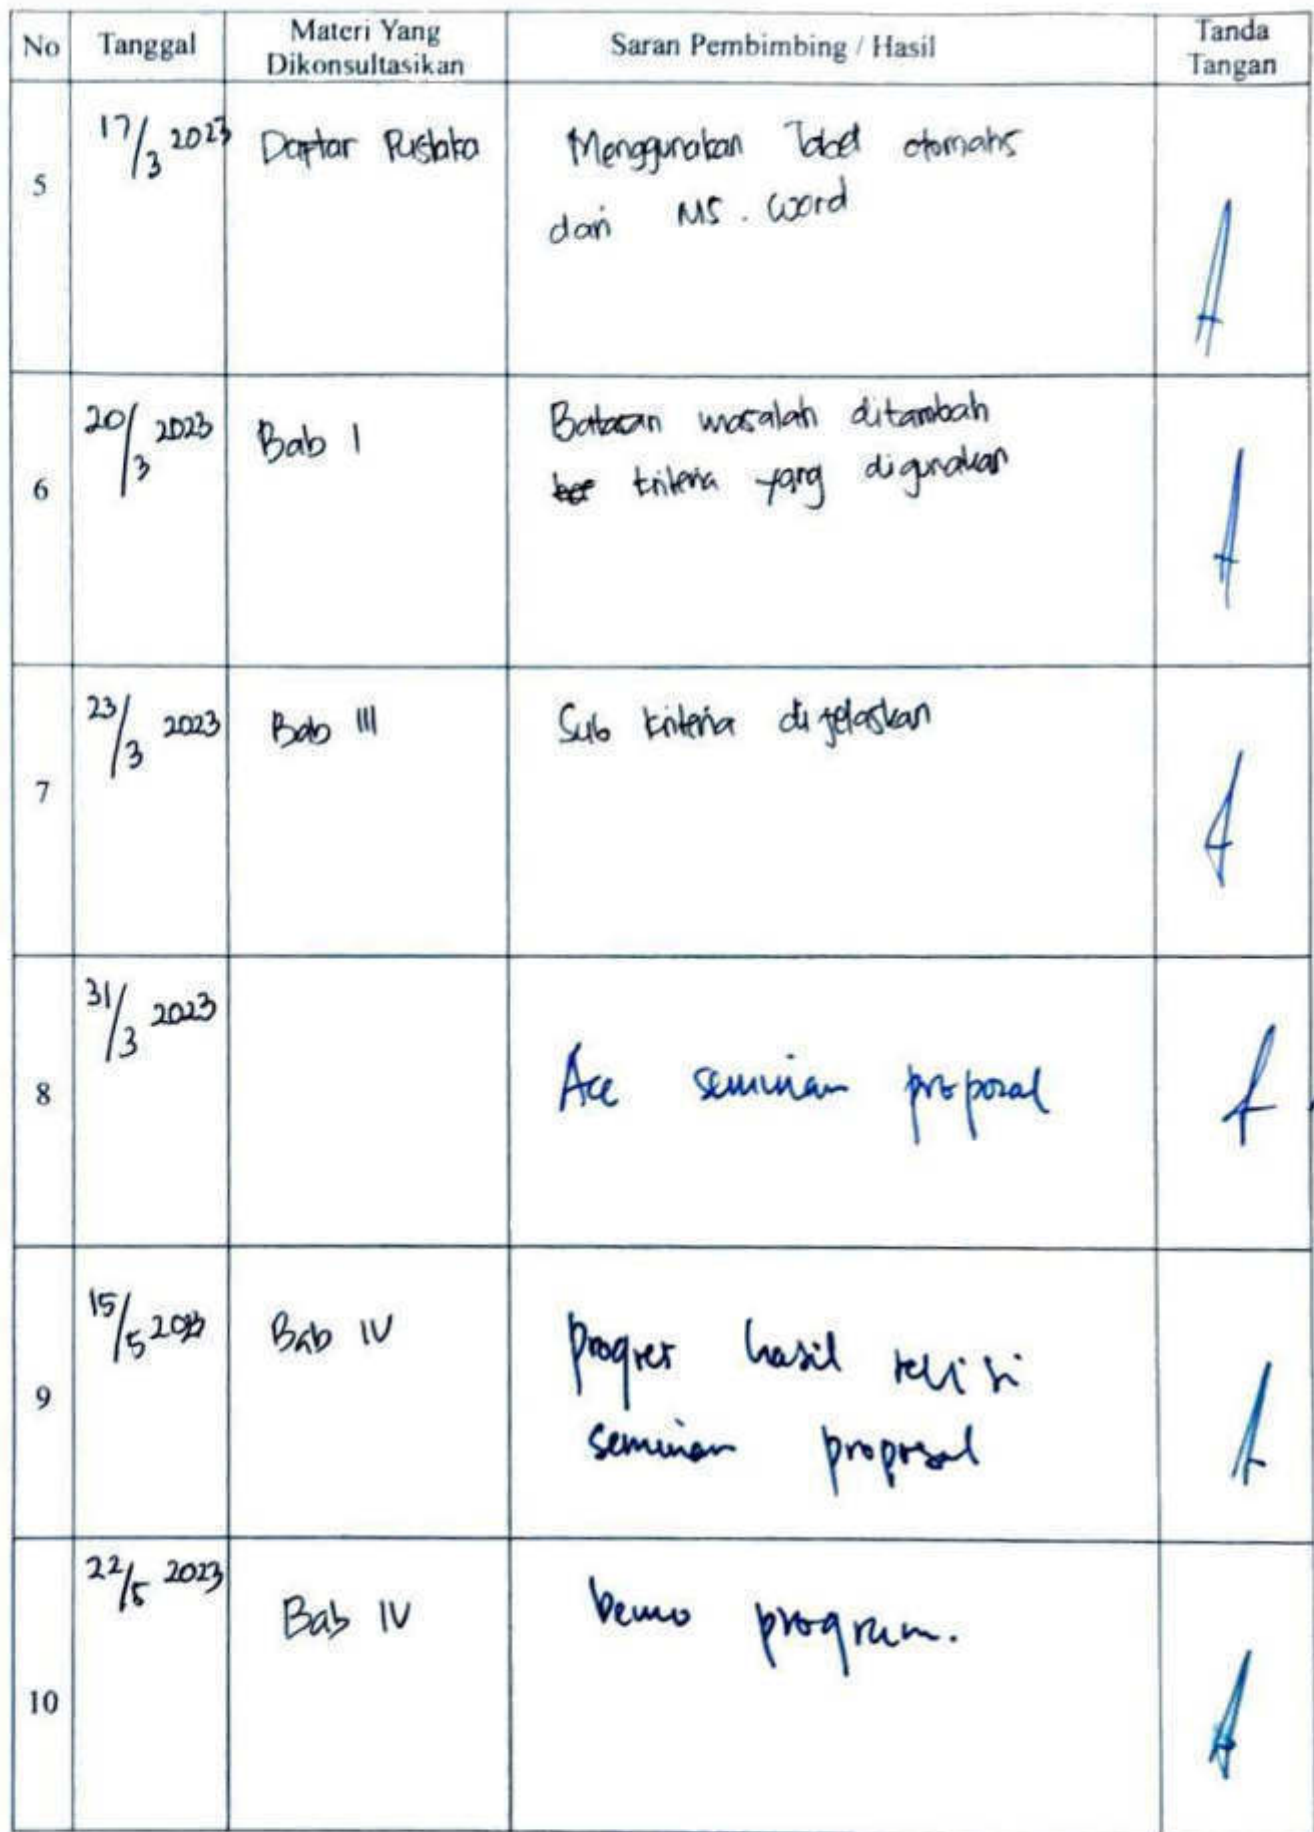 No Tanggal Materi Yang Dikonsultasikan Saran Pembimbing / Hasil Tanda Tangan
5 17/3 2023 Daftar Pustaka Menggunakan Tabel otomatis
dari MS. Word
6 20/3 2023 Bab I Batasan masalah ditambah
kriteria yang digunakan
7 23/3 2023 Bab III Sub kriteria dijelaskan
8 31/3 2023 Acc seminar proposal
9 15/5 2023 Bab IV Progres hasil revisi
seminar proposal
10 22/5 2023 Bab IV Demo program.